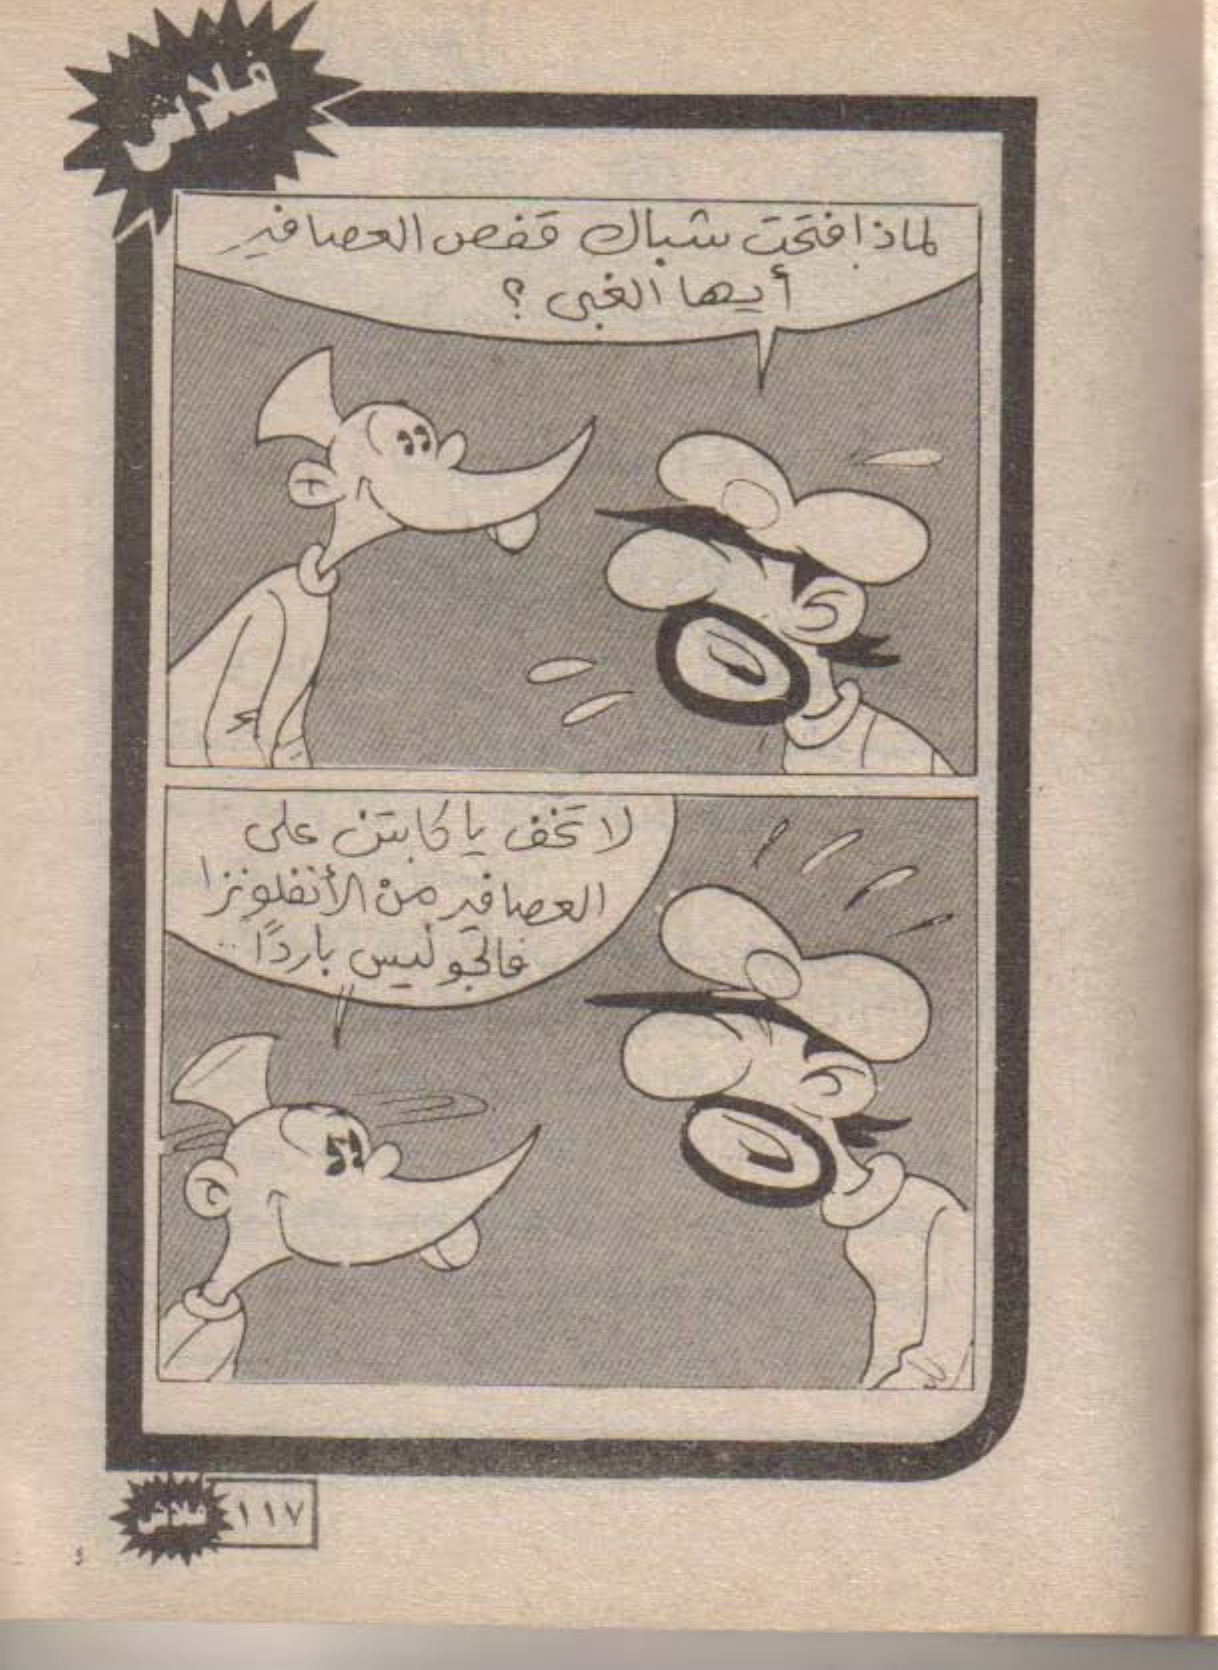 فلاش
لماذا فتَحَت شباك قفص العصافير
أيها الغبى ؟
لا تخَف يا كابتن على
العصافير من الأنفلونزا
فالجو ليس باردًا ..
فلاش
١١٧